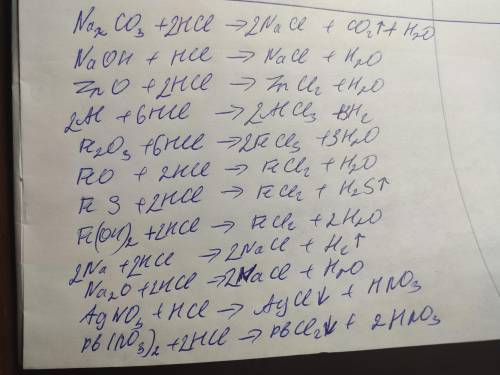 Na₂CO₃ + 2HCl → 2NaCl + CO₂↑ + H₂O
NaOH + HCl → NaCl + H₂O
ZnO + 2HCl → ZnCl₂ + H₂O
2Al + 6HCl → 2AlCl₃ + 3H₂
Fe₂O₃ + 6HCl → 2FeCl₃ + 3H₂O
FeO + 2HCl → FeCl₂ + H₂O
FeS + 2HCl → FeCl₂ + H₂S↑
Fe(OH)₂ + 2HCl → FeCl₂ + 2H₂O
2Na + 2HCl → 2NaCl + H₂↑
Na₂O + 2HCl → 2NaCl + H₂O
AgNO₃ + HCl → AgCl↓ + HNO₃
Pb(NO₃)₂ + 2HCl → PbCl₂↓ + 2HNO₃